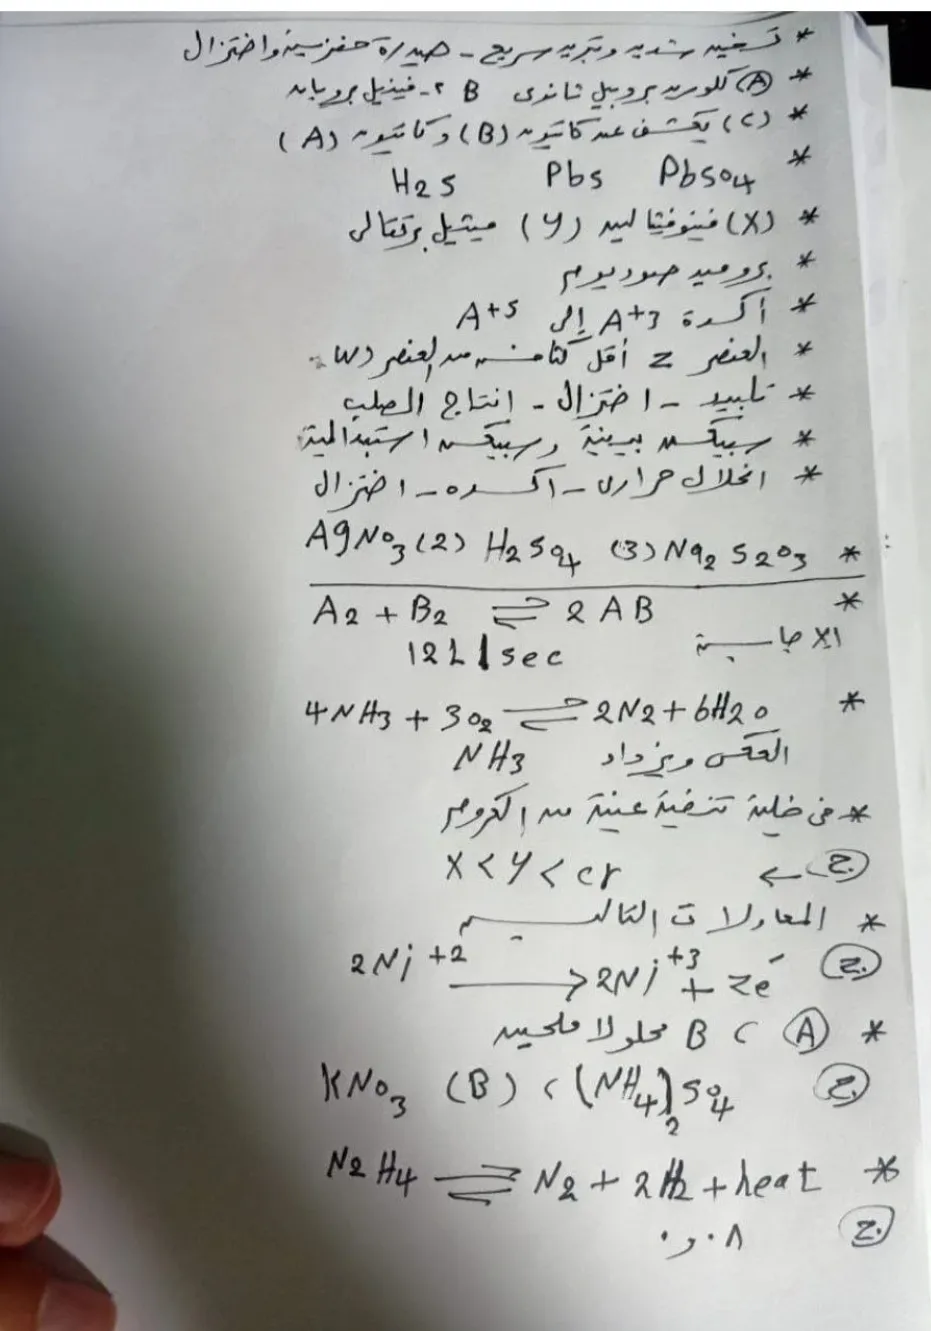 * تسخين شديد وتبريد سريع - هيدرة حفزية واختزال
* (A) كلوريد بروبيل ثانوى B ٢-فينيل بروبان
* (C) يكشف عن كاتيون (B) وكاتيون (A)
* PbSO4 PbS H2S
* (X) فينوفيثالين (Y) ميثيل برتقالى
* بروميد صوديوم
* أكسدة A+3 إلى A+5
* العنصر Z أقل كثافة من العنصر W
* تلبيد - اختزال - انتاج الصلب
* سبيكة بينية وسبيكة استبدالية
* انحلال حرارى - اكسده - اختزال
* AgNO3 (2) H2SO4 (3) Na2S2O3
* A2 + B2 ⇌ 2AB
الاجابة
12L/sec
* 4NH3 + 3O2 ⇌ 2N2 + 6H2O
العكس ويزداد NH3
* فى خلية تنقية عينة من الكروم
ج. ← X < Y < Cr
* المعادلات التالية
ج. 2Ni+2 → 2Ni+3 + 2e-
* (A) ، B محلولا ملحين
ج. (NH4)2SO4 ، (B) KNO3
* N2H4 ⇌ N2 + 2H2 + heat
ج. ٠٫٠٨